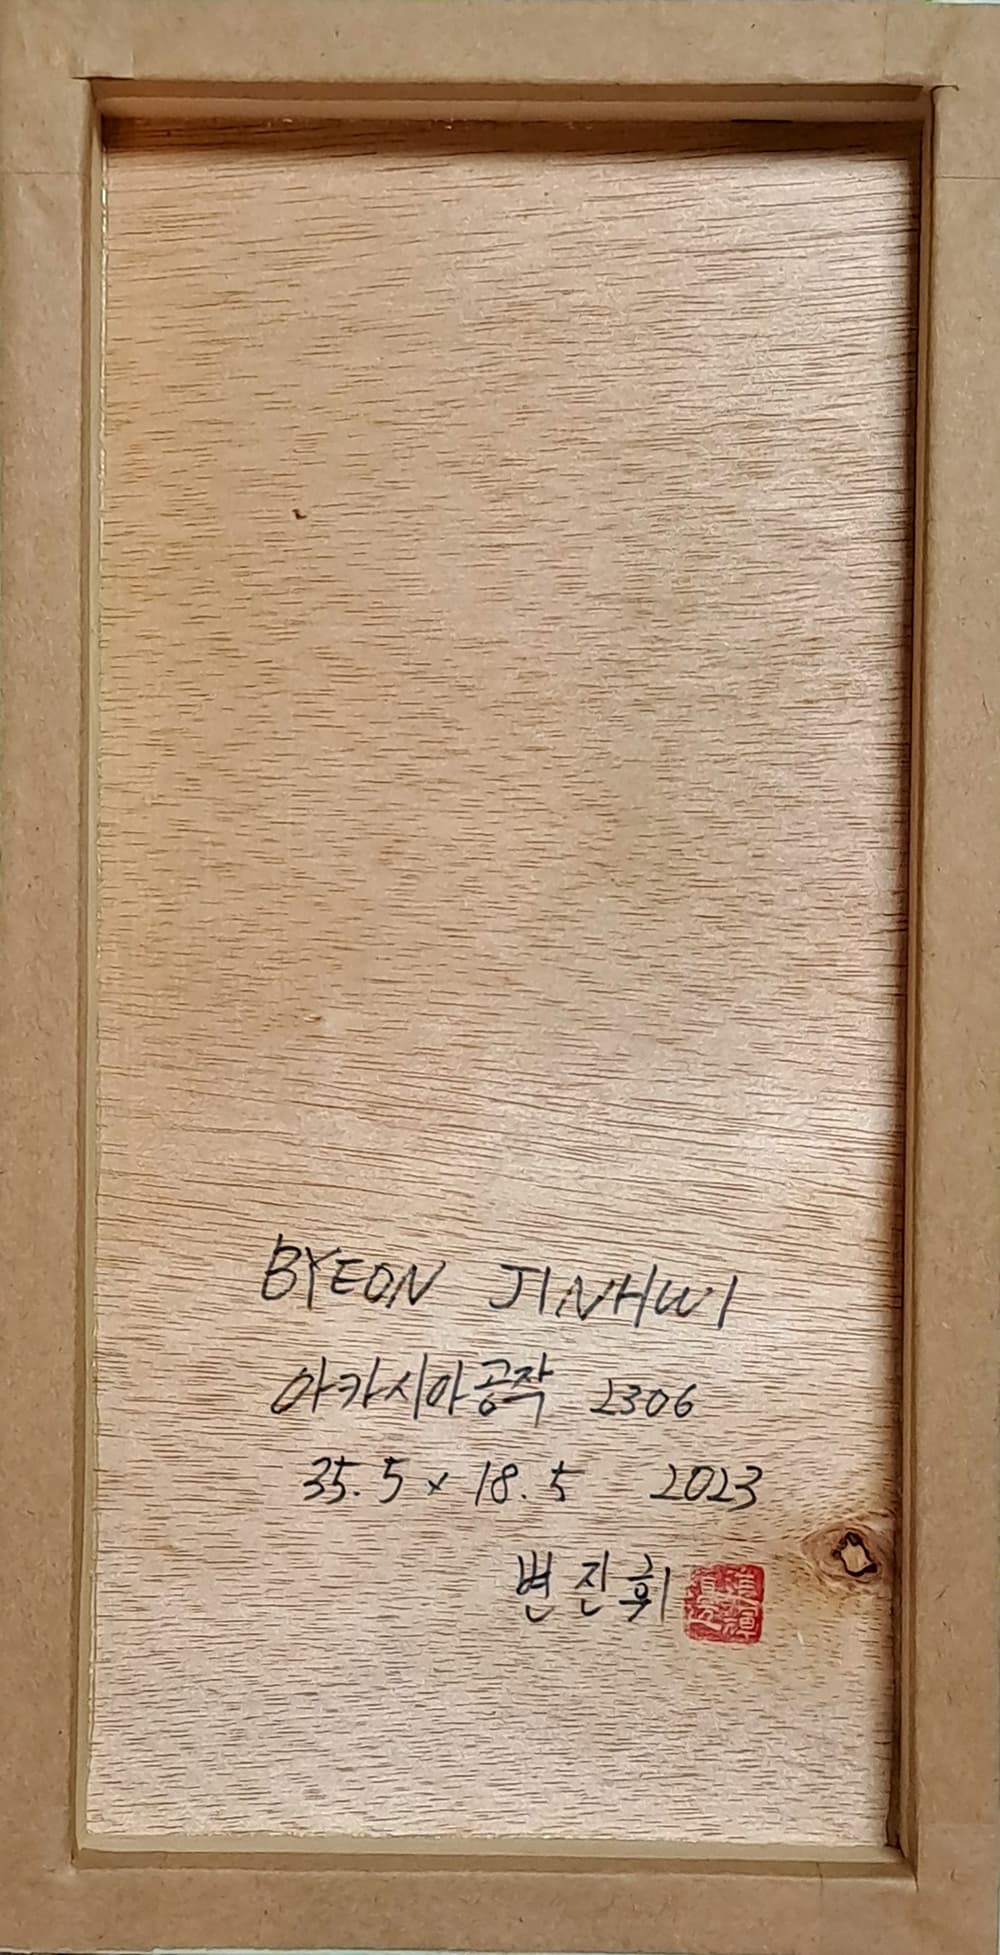 BYEON JINHWI
아카시아공작 2306
35.5 x 18.5 2023
변진휘